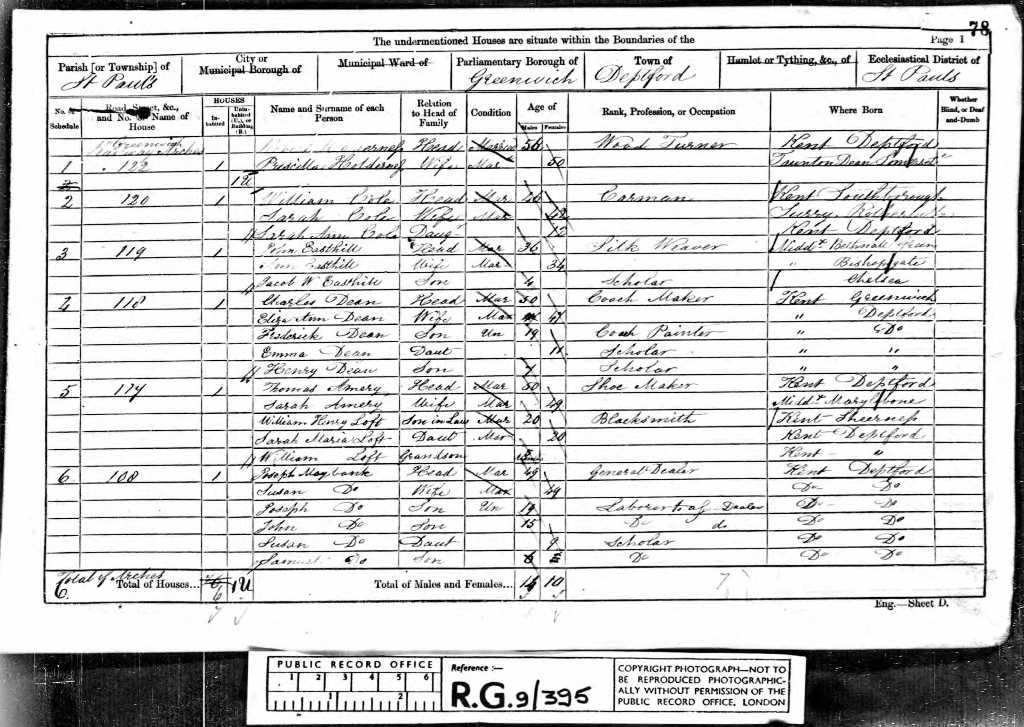 78
The undermentioned Houses are situate within the Boundaries of the
Page 1
Parish [or Township] of
St Pauls
City or
Municipal Borough of
Municipal Ward of
Parliamentary Borough of
Greenwich
Town of
Deptford
Hamlet or Tything, &c., of
Ecclesiastical District of
St Pauls
No. of Schedule
Road, Street, &c., and No. or Name of House
HOUSES
Inhabited
Uninhabited (U.), or Building (B.)
Name and Surname of each Person
Relation to Head of Family
Condition
Age of
Males
Females
Rank, Profession, or Occupation
Where Born
Whether Blind, or Deaf and-Dumb
Greenwich
Railway Arches Head Married 56 Wood Turner Kent Deptford
1 122 1 Priscilla Wife Mar 50 Taunton Dean Somerset
1U
2 120 1 William Cole Head Mar 46 Carman Kent Southborough
Sarah Cole Wife Mar 42 Surry
Sarah Ann Cole Daug 12 Kent Deptford
3 119 1 John Easthill Head Mar 36 Silk Weaver Middx Bethnall Green
Ann Easthill Wife Mar 34 " Bishopsgate
Jacob W Easthill Son 4 Scholar Chelsea
4 118 1 Charles Dean Head Mar 50 Coach Maker Kent Greenwich
Eliza Ann Dean Wife Mar 47 " Deptford
Frederick Dean Son Un 19 Coach Painter " Do
Emma Dean Daut 11 Scholar " "
Henry Dean Son 7 Scholar " "
5 117 1 Thomas Amery Head Mar 50 Shoe Maker Kent Deptford
Sarah Amery Wife Mar 49 Middx Marylebone
William Henry Loft Son in Law Mar 20 Blacksmith Kent Sheerness
Sarah Maria Loft Daut Mar 20 Kent Deptford
William Loft Grandson Kent "
6 108 1 Joseph Maybank Head Mar 49 General Dealer Kent Deptford
Susan Do Wife Mar 49 Do Do
Joseph Do Son Un 19 Laborer to a G Dealer Do Do
John Do Son 15 Do do Do Do
Susan Do Daut 9 Scholar Do Do
Samuel Do Son 6 Do Do Do
Total of Arches
6
Total of Houses... 6 1U
Total of Males and Females... 10
Eng.—Sheet D.
PUBLIC RECORD OFFICE
1 2 3 4 5 6
1 2
Reference :—
R.G. 9/395
COPYRIGHT PHOTOGRAPH—NOT TO
BE REPRODUCED PHOTOGRAPHIC-
ALLY WITHOUT PERMISSION OF THE
PUBLIC RECORD OFFICE, LONDON